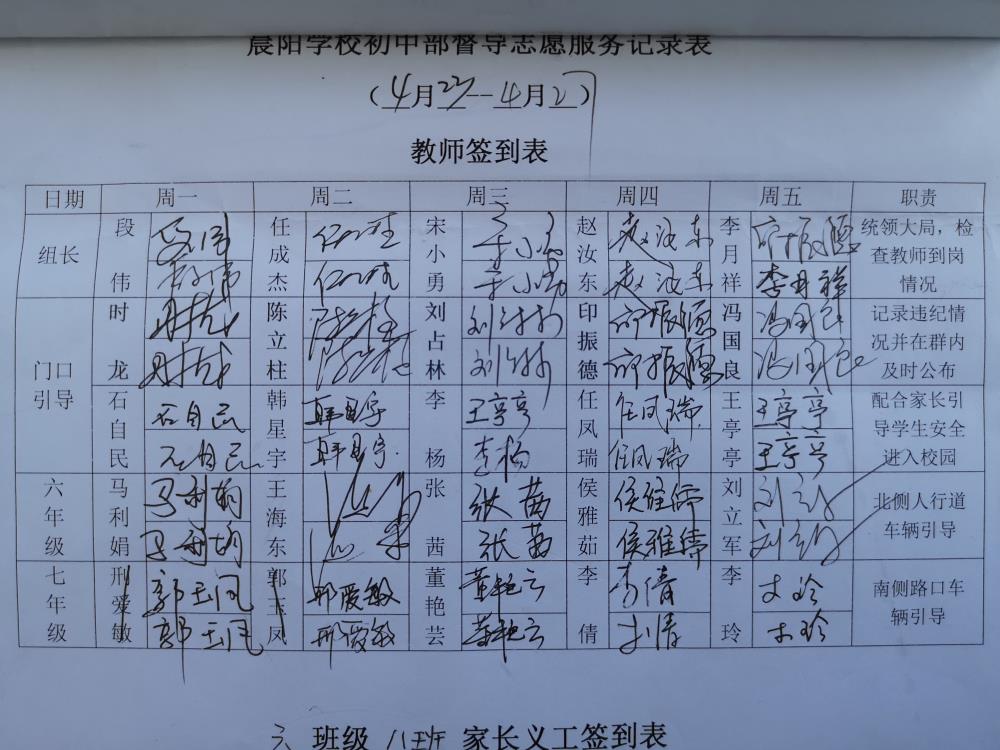 晨阳学校初中部督导志愿服务记录表
（4月23--4月27）
教师签到表
日期 周一 周二 周三 周四 周五 职责
组长 段伟 段伟 任成杰 宋小勇 宋小勇 赵汝东 赵汝东 赵汝东 李月祥 印振德 李月祥 统领大局，检查教师到岗情况
门口引导 时龙 时龙 时龙 陈立柱 陈立柱 刘占林 刘占林 刘占林 印振德 印振德 印振德 冯国良 冯国良 冯国良 记录违纪情况并在群内及时公布
石自民 石自民 石自民 韩星宇 韩星宇 韩星宇 李杨 王亭亭 李杨 任凤瑞 任凤瑞 任凤瑞 王亭亭 王亭亭 王亭亭 配合家长引导学生安全进入校园
六年级 马利娟 马利娟 马利娟 王海东 张茜 张茜 张茜 侯雅茹 侯雅茹 侯雅茹 刘立军 北侧人行道车辆引导
七年级 邢爱敏 郭玉凤 郭玉凤 郭玉凤 邢爱敏 邢爱敏 董艳芸 董艳云 董艳云 李倩 李倩 李倩 李玲 李玲 李玲 南侧路口车辆引导
六 班级 八班 家长义工签到表